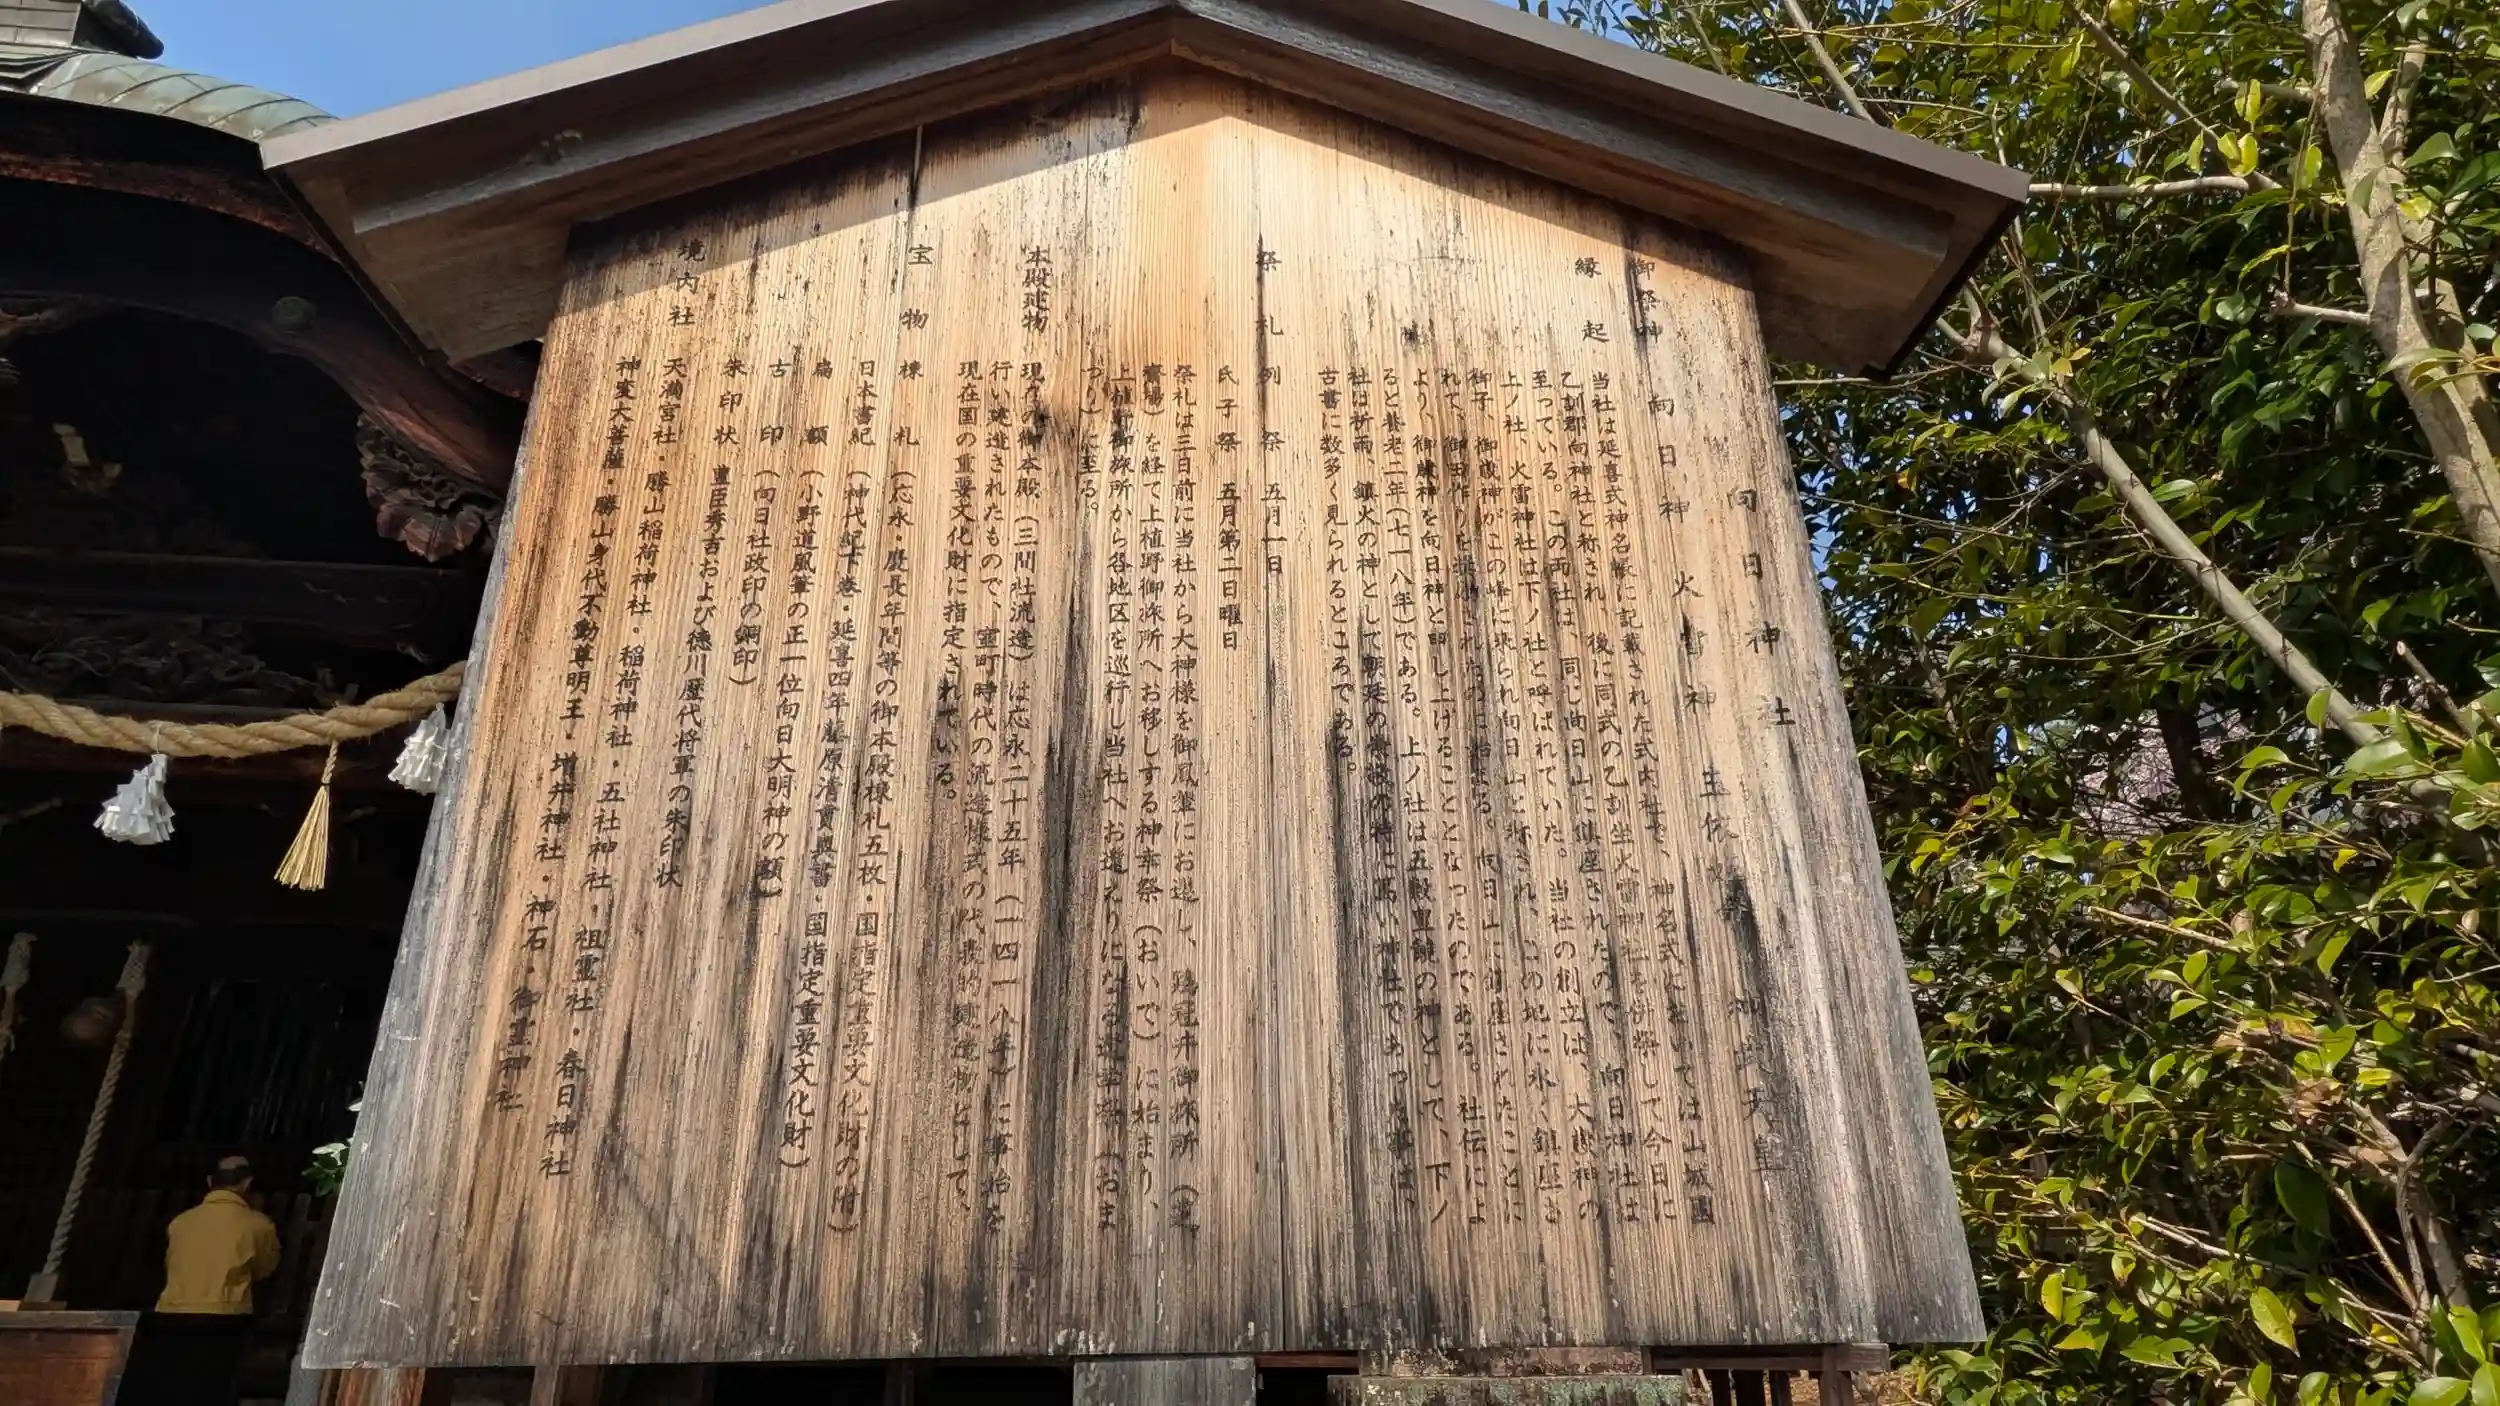 向日神社
御祭神 向日神 火雷神 玉依姫 神武天皇
縁起
当社は延喜式神名帳に記載された式内社で、神名式においては山城国
乙訓郡向神社と称され、後に同式の乙訓坐火雷神社を併祭して今日に
至っている。この両社は、同じ向日山に鎮座されたので、向日神社は
上ノ社、火雷神社は下ノ社と呼ばれていた。当社の創立は、大歳神の
御子、御歳神がこの峰に来られ向日山と称され、この地に永く鎮座さ
れて、御田作りを奨励されたのに始まる。向日山に鎮座されたことに
より、御歳神を向日神と申し上げることとなったのである。社伝によ
ると養老二年(七一八年)である。上ノ社は五穀豊饒の神として、下ノ
社は祈雨、鎮火の神として朝廷の崇敬の特に篤い神社であった事は、
古書に数多く見られるところである。
祭礼 列祭 五月一日
氏子祭 五月第二日曜日
祭礼は三日前に当社から大神様を御鳳輦にお遷し、鶏冠井御旅所(
斎場)を経て上植野御旅所へお移しする神幸祭(おいで)に始まり、
上植野御旅所から各地区を巡行し当社へお還えりになる還幸祭(おま
つり)に至る。
本殿建物
現在の御本殿(三間社流造)は応永二十五年(一四一八年)に事始を
行い建造されたもので、室町時代の流造様式の代表的建造物として、
現在国の重要文化財に指定されている。
宝物
棟札(応永・慶長年間等の御本殿棟札五枚・国指定重要文化財の附)
日本書紀(神代紀下巻・延喜四年藤原清貫奥書・国指定重要文化財)
扁額(小野道風筆の正一位向日大明神の額)
古印(向日社政印の銅印)
朱印状 豊臣秀吉および徳川歴代将軍の朱印状
境内社
天満宮社・勝山稲荷神社・稲荷神社・五社神社・祖霊社・春日神社
神変大菩薩・勝山身代不動尊明王・増井神社・神石・御霊神社